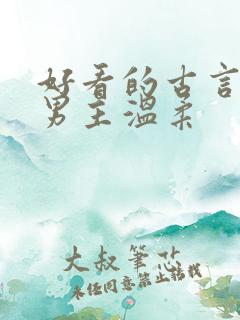 好看的古言
男主温柔
大叔笔芯
未经同意禁止搭我